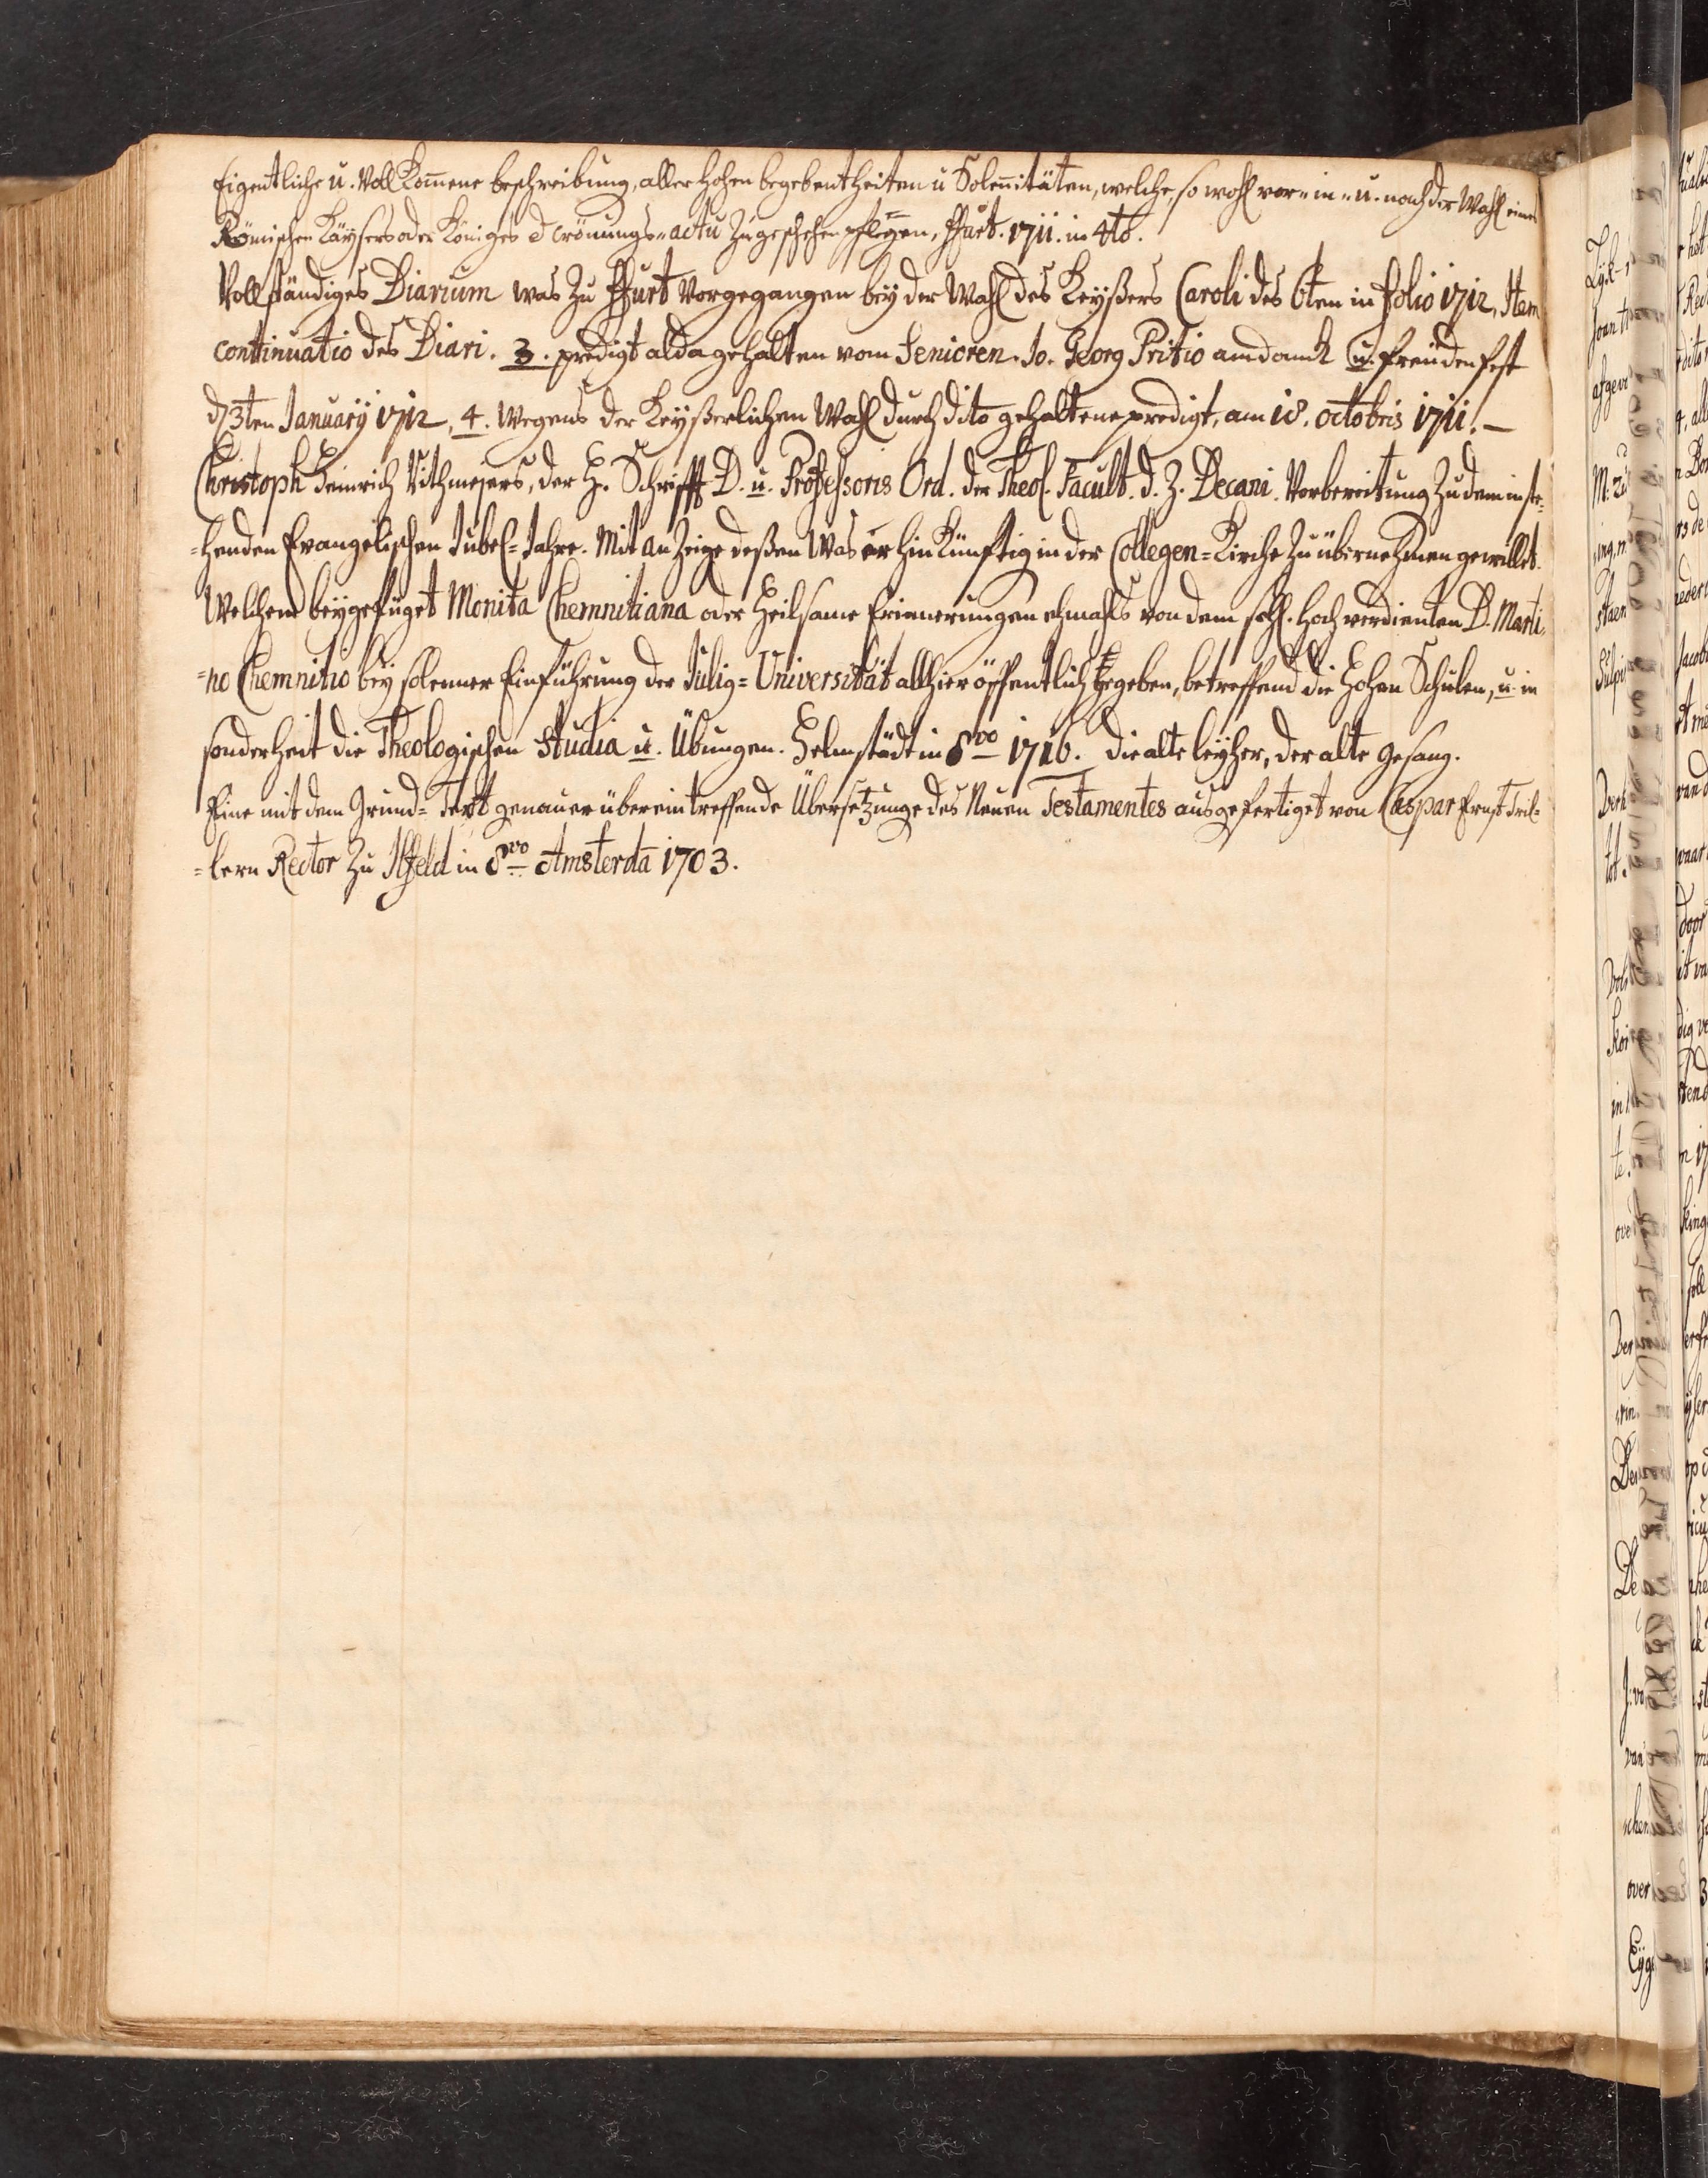 Eigentliche u. Vollkom̄ene beschreibung, aller hohen begebentheiten u Solen̄itäten, welche, so wohl vor- in- u. nach der Wahl eines
Römischen Käysers oder Königes & crönungs-actu zugeschehen pflegen, ffurt. 1711. in 4to.
Vollständiges Diarium was zu ffurt vorgegangen bey der Wahl des Keyßers Caroli des 6ten in folio 1712, Item
continuatio des Diari. 3. predigt alda gehalten vom Senioren. Jo. Georg Pritio am danck u. freuden fest
d 3ten January 1712, 4. wegens der Keyßerlichen Wahl durch dito gehaltene predigt, am 18. octobris 1711. —
Christoph Heinrich Rithmejers, der H. Schrifft D. u. Professoris Ord. der Theol. Facult. d. Z. Decani. Vorbereitung zu dem inste-
=henden Evangelischen Jubel-Jahre. Mit anzeige deßen was er hinkünftig in der Collegen-Kirche zu übernehmen gewillet.
Welchem beygefüget Monita Chemnitiana oder heilsame Erinnerungen ehmahls von dem sehl. hochverdienten D. Marti-
=no Chemnitio bey solenner Einführung der Julig-Universität allhier öffentlich gegeben, betreffend die hohen Schulen, u. in
sonderheit die Theologischen Studia u. Übungen. Helmstädt in 8vo 1716. die alte leyher, der alte gesang.
Eine mit dem Grund-Text genauer übereintreffende Übersetzunge des Neuen Testamentes ausgefertiget von Caspar Ernst Tril-
=lern Rector zu Ilfeld in 8vo Amsterdā 1703.